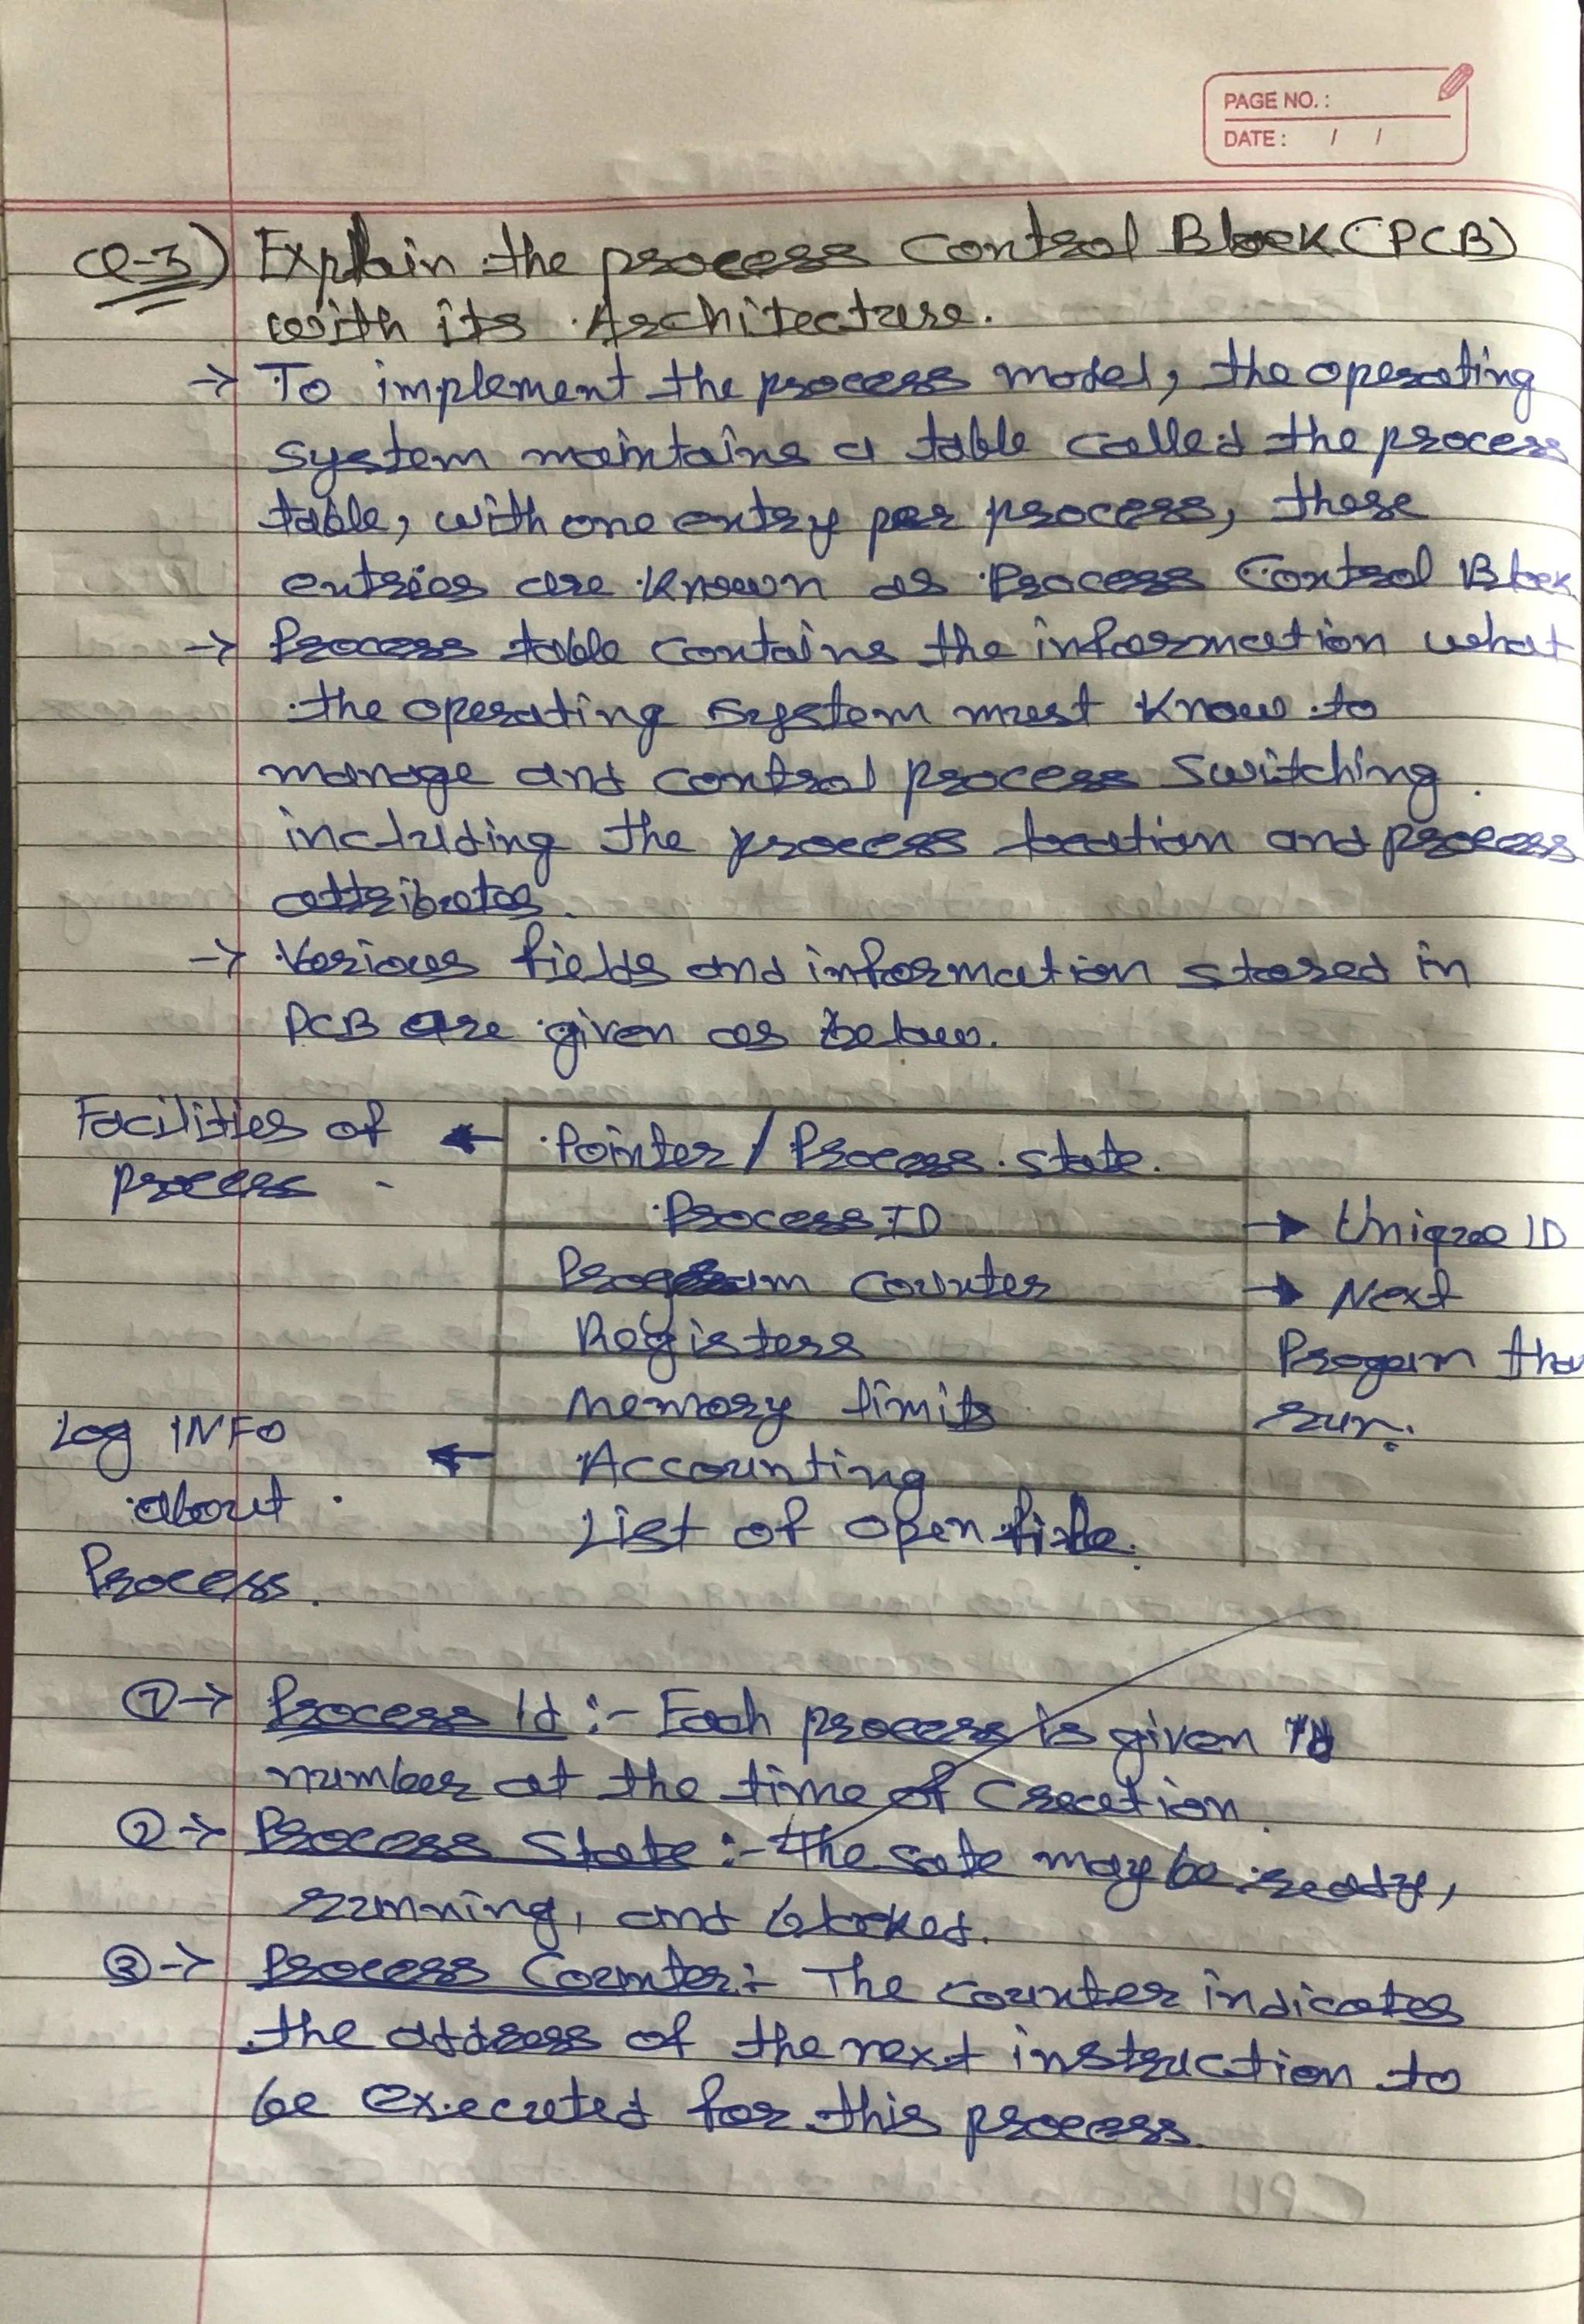 PAGE NO. :
DATE : / /
Q-3) Explain the process Control Block (PCB)
with its Architecture.
→ To implement the process model, the operating
system maintains a table called the process
table, with one entry per process, these
entries are known as Process Control Block
→ Process table contains the information what
the operating system must know to
manage and control process switching
including the process location and process
attributes.
→ Various fields and information stored in
PCB are given as below.
Facilities of ← Pointer / Process state.
process -
Process ID → Unique ID
Program counter → Next
Registers Progam tha
Memory limits run.
Log INFO ← Accounting
about . List of open file.
Process.
①→ Process Id :- Each process is given Id
number at the time of Creation.
②→ Process State :- The sate may be ready,
running, and blocked.
③→ Process Counter :- The counter indicates
the address of the next instruction to
be executed for this process.